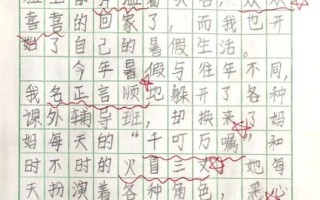 喜喜的回家了,而我也开
始了自己的暑假生活。
今年暑假与往年不同,
我名正言顺地躲开了各种
课外辅导班,却换来了妈
妈每天的“千叮万嘱”和
时不时的火冒三丈。她每
天扮演着各种角色,悉心